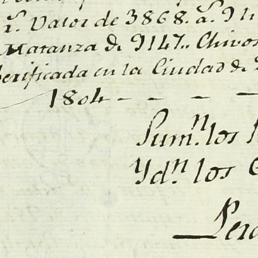 r. Valor de 3868. a. 9
Matanza de 9147.. Chivos
Verificada en la Ciudad de
1804
Sum.n los
Yd.n los
Perd